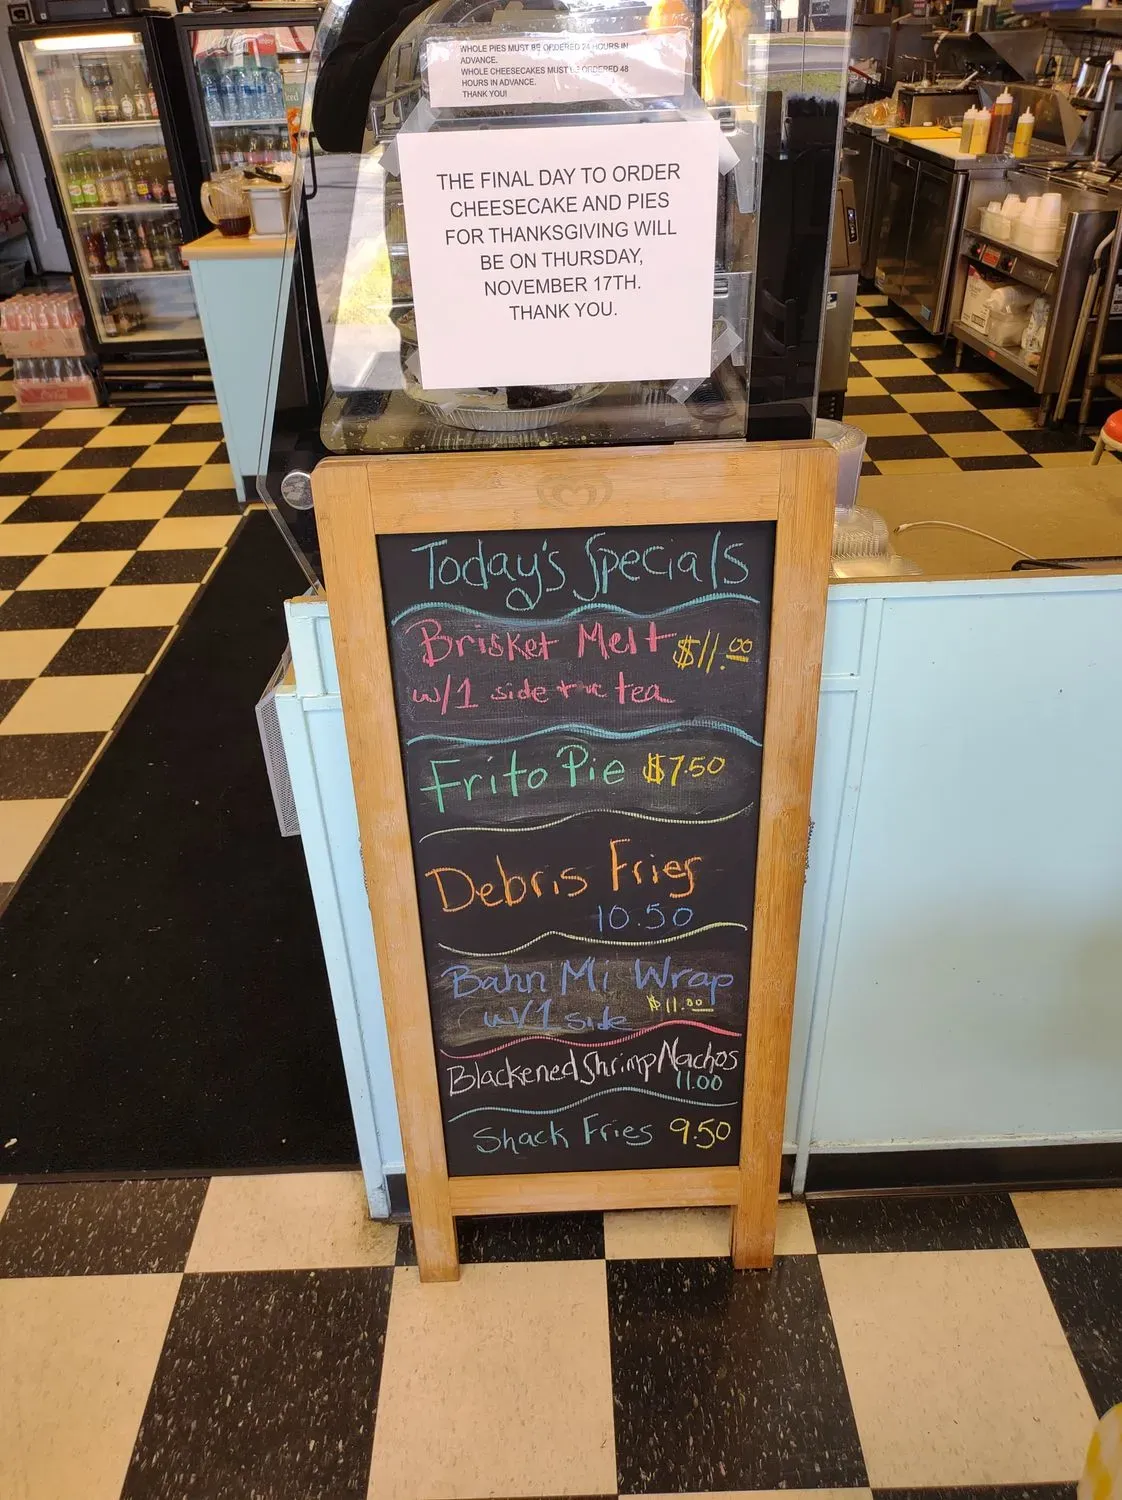 WHOLE PIES MUST BE ORDERED 24 HOURS IN
ADVANCE.
WHOLE CHEESECAKES MUST BE ORDERED 48
HOURS IN ADVANCE.
THANK YOU!
THE FINAL DAY TO ORDER
CHEESECAKE AND PIES
FOR THANKSGIVING WILL
BE ON THURSDAY,
NOVEMBER 17TH.
THANK YOU.
Today's Specials
Brisket Melt $11.00
w/1 side + tea
Frito Pie $7.50
Debris Fries
10.50
Bahn Mi Wrap
w/1 side $11.00
Blackened Shrimp Nachos
11.00
Shack Fries 9.50